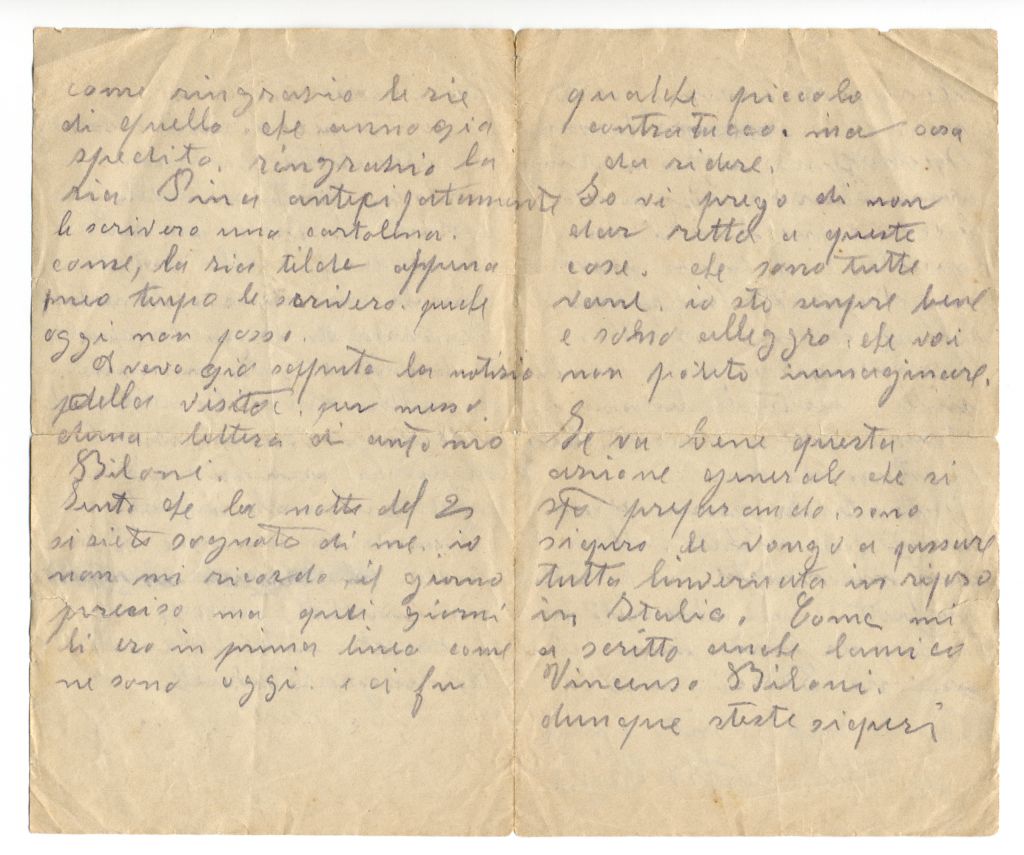 come ringrasio le sie
di quello che anno gia
spedito. ringrasio la
sia Pina antecipatamente
le scrivero una cartolina.
come, la sia tilde appena
tenpo le scrivero. perche
oggi non posso.
Avevo gia sapputo la notisia
della visita. per messo
duna lettera di antonio
Biloni.
Sento che la notte del 2
si siete sognato di me. io
non mi ricordo il giorno
preciso ma quei giorni
li ero in prima linea come
ne sono oggi. e ci fu
qualche piccolo
contratacco. ma cosa
da ridere.
Io vi prego di non
dar retta a queste
cose. che sono tutte
vane. io sto senpre bene
e sono alleggro che voi
non potete immaginare.
Se va bene questa
asione generale che si
sta preparando. sono
siquro che vengo a passare
tutta linvernata in riposo
in Italia. Come mi
a scritto anche lamico
Vincenso Biloni.
dunque steste siquri